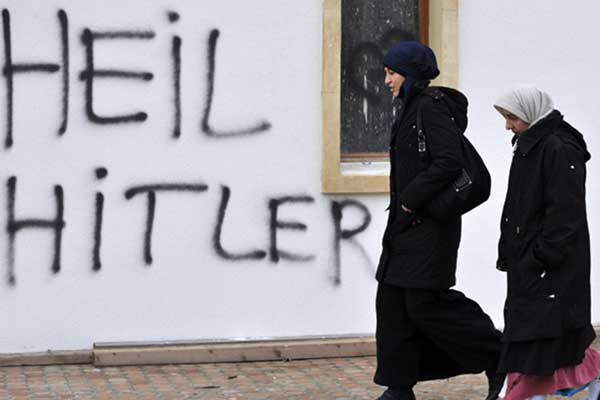 HEiL
HiTLER